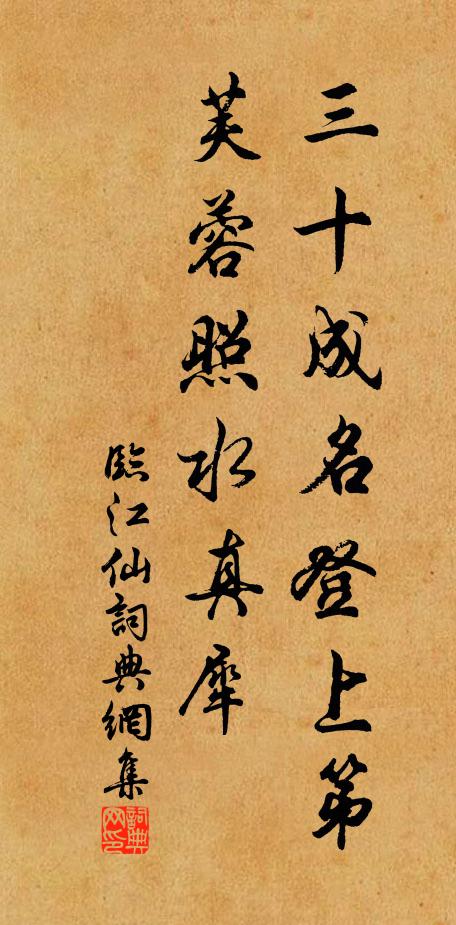 三十成名登上第
芙蓉照水真犀
臨江仙詞典網集
詞典网印